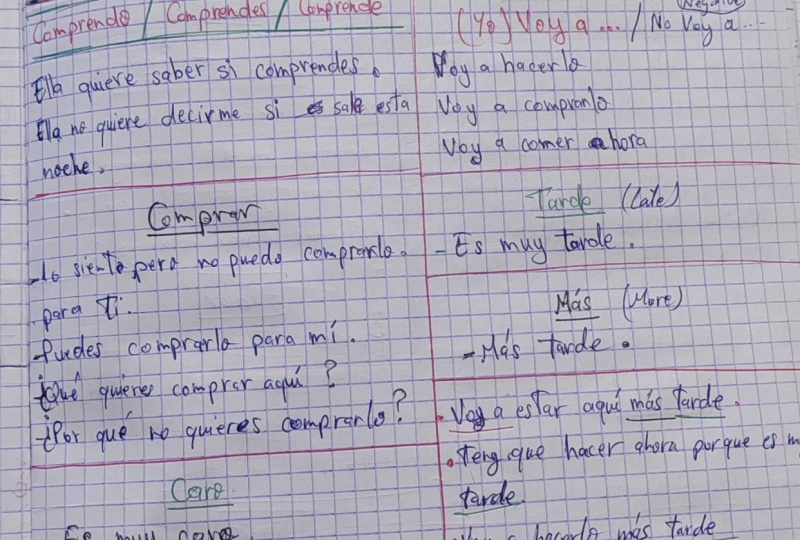 Comprendo / Comprendes / Comprende
Ella quiere saber si comprendes.
Ella no quiere decirme si sale esta
noche.
Comprar
- Lo siento, pero no puedo comprarlo.
para Ti.
- Puedes comprarlo para mí.
- ¿Qué quieres comprar aquí ?
- ¿Por qué no quieres comprarlo?
Caro
Es muy caro.
(Yo) Voy a ... / No Voy a ...
Voy a hacerlo
Voy a comprarlo
Voy a comer ahora
Tarde (Late)
- Es muy tarde.
Más (More)
- Más tarde.
. Voy a estar aquí más tarde.
. Teng que hacer ahora porque es
tarde.
a hacerlo más tarde